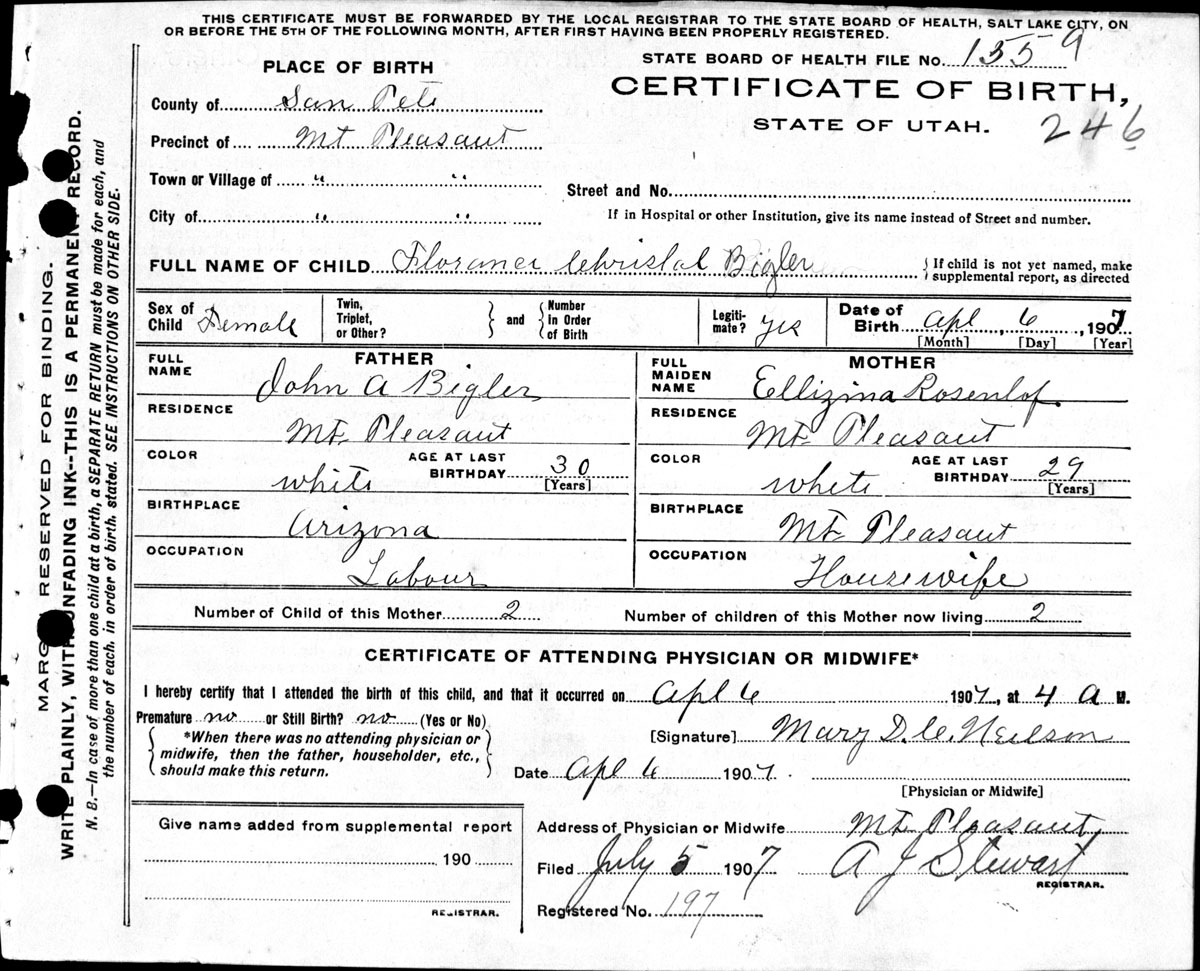 THIS CERTIFICATE MUST BE FORWARDED BY THE LOCAL REGISTRAR TO THE STATE BOARD OF HEALTH, SALT LAKE CITY, ON
OR BEFORE THE 5TH OF THE FOLLOWING MONTH, AFTER FIRST HAVING BEEN PROPERLY REGISTERED.
STATE BOARD OF HEALTH FILE No. 1559
PLACE OF BIRTH
CERTIFICATE OF BIRTH,
STATE OF UTAH.
246
County of San Pete
Precinct of Mt Pleasant
Town or Village of " "
Street and No.
City of " "
If in Hospital or other Institution, give its name instead of Street and number.
FULL NAME OF CHILD Florance Christal Bigler
{ If child is not yet named, make
supplemental report, as directed
Sex of Child Female
Twin, Triplet, or Other? } and { Number in Order of Birth
Legitimate? yes
Date of Birth Apl, 6, 1907
[Month] [Day] [Year]
FATHER
FULL NAME John A Bigler
RESIDENCE
Mt. Pleasant
COLOR white
AGE AT LAST BIRTHDAY 30
[Years]
BIRTHPLACE
Arizona
OCCUPATION
Labour
MOTHER
FULL MAIDEN NAME Ellizina Rosenlof
RESIDENCE
Mt. Pleasant
COLOR white
AGE AT LAST BIRTHDAY 29
[Years]
BIRTHPLACE
Mt. Pleasant
OCCUPATION
Housewife
Number of Child of this Mother 2
Number of children of this Mother now living 2
CERTIFICATE OF ATTENDING PHYSICIAN OR MIDWIFE*
I hereby certify that I attended the birth of this child, and that it occurred on Apl 6 1907, at 4 a M.
Premature no or Still Birth? no (Yes or No)
{ *When there was no attending physician or
midwife, then the father, householder, etc.,
should make this return. }
[Signature] Mary D.C. Neilson
Date Apl 6 1907.
[Physician or Midwife]
Give name added from supplemental report
190
REGISTRAR.
Address of Physician or Midwife Mt. Pleasant
Filed July 5 1907
A J Stewart
REGISTRAR.
Registered No. 197
MARGIN RESERVED FOR BINDING.
WRITE PLAINLY, WITH UNFADING INK--THIS IS A PERMANENT RECORD.
N. B.—In case of more than one child at a birth, a SEPARATE RETURN must be made for each, and
the number of each, in order of birth, stated. SEE INSTRUCTIONS ON OTHER SIDE.